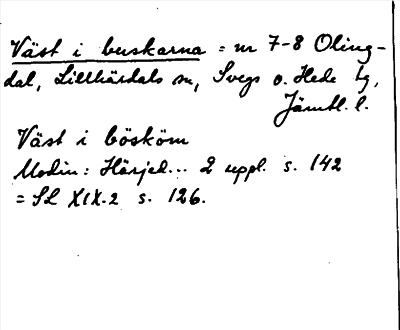 Väst i buskarna = nr 7-8 Oling-
dal, Lillhärdals sn, Svegs o. Hede tg,
Jämtl. l.
Väst i bösköm
Modin: Härjed... 2 uppl. s. 142
= SL XIX.2 s. 126.